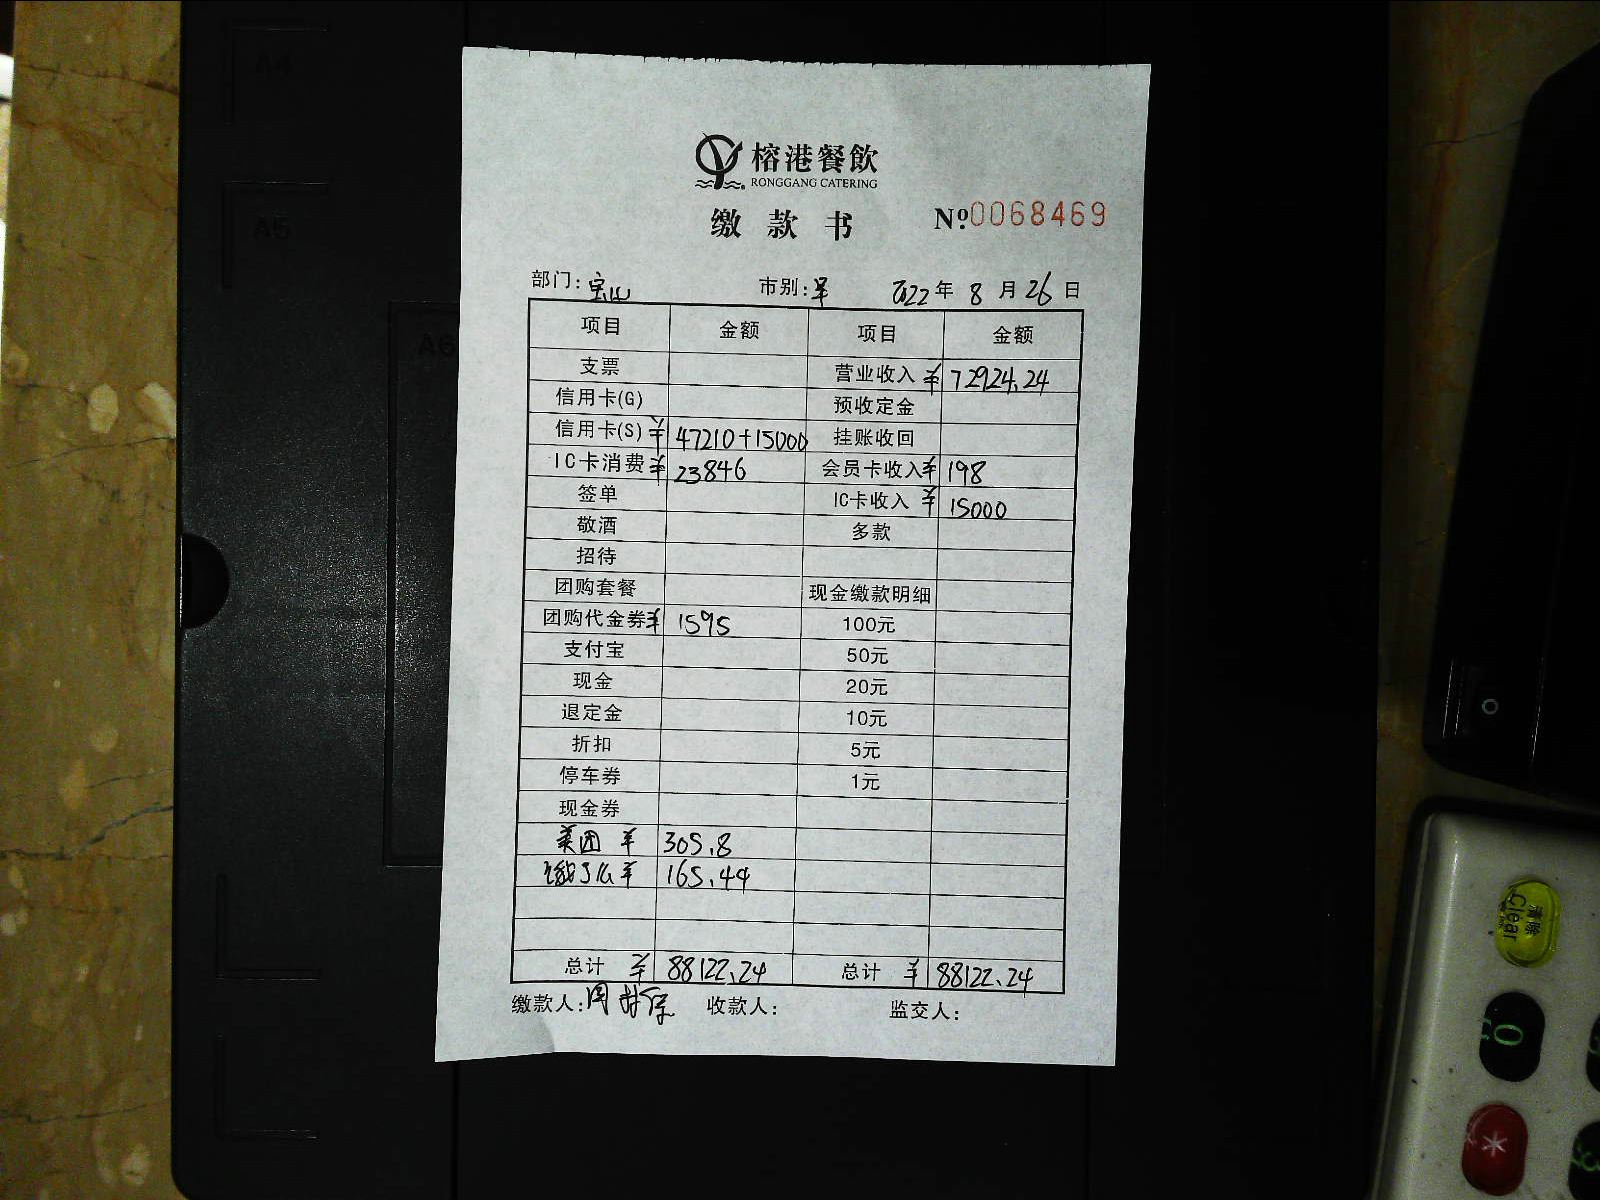 A4
A5
A6
榕港餐飲
RONGGANG CATERING
缴款书 №0068469
部门:宝山 市别:早 2022年8月26日
项目 金额 项目 金额
支票 营业收入 ¥72924.24
信用卡(G) 预收定金
信用卡(S) ¥47210+15000 挂账收回
IC卡消费 ¥23846 会员卡收入 ¥198
签单 IC卡收入 ¥15000
敬酒 多款
招待
团购套餐 现金缴款明细
团购代金券 ¥1595 100元
支付宝 50元
现金 20元
退定金 10元
折扣 5元
停车券 1元
现金券
美团 ¥305.8
饿了么 ¥165.44
总计 ¥88122.24 总计 ¥88122.24
缴款人:周 收款人: 监交人:
清除
Clear
0
*